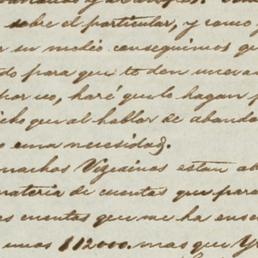 sobre el particular, y como
su medio conseguimos que
do para que te den una
por eso, haré que lo hagan p
icho que al hablar de aband
o una necesidad.
muchos Vizcainos estan ab
materia de cuentas que para
as cuentas que me ha ense
unos $12000. mas que